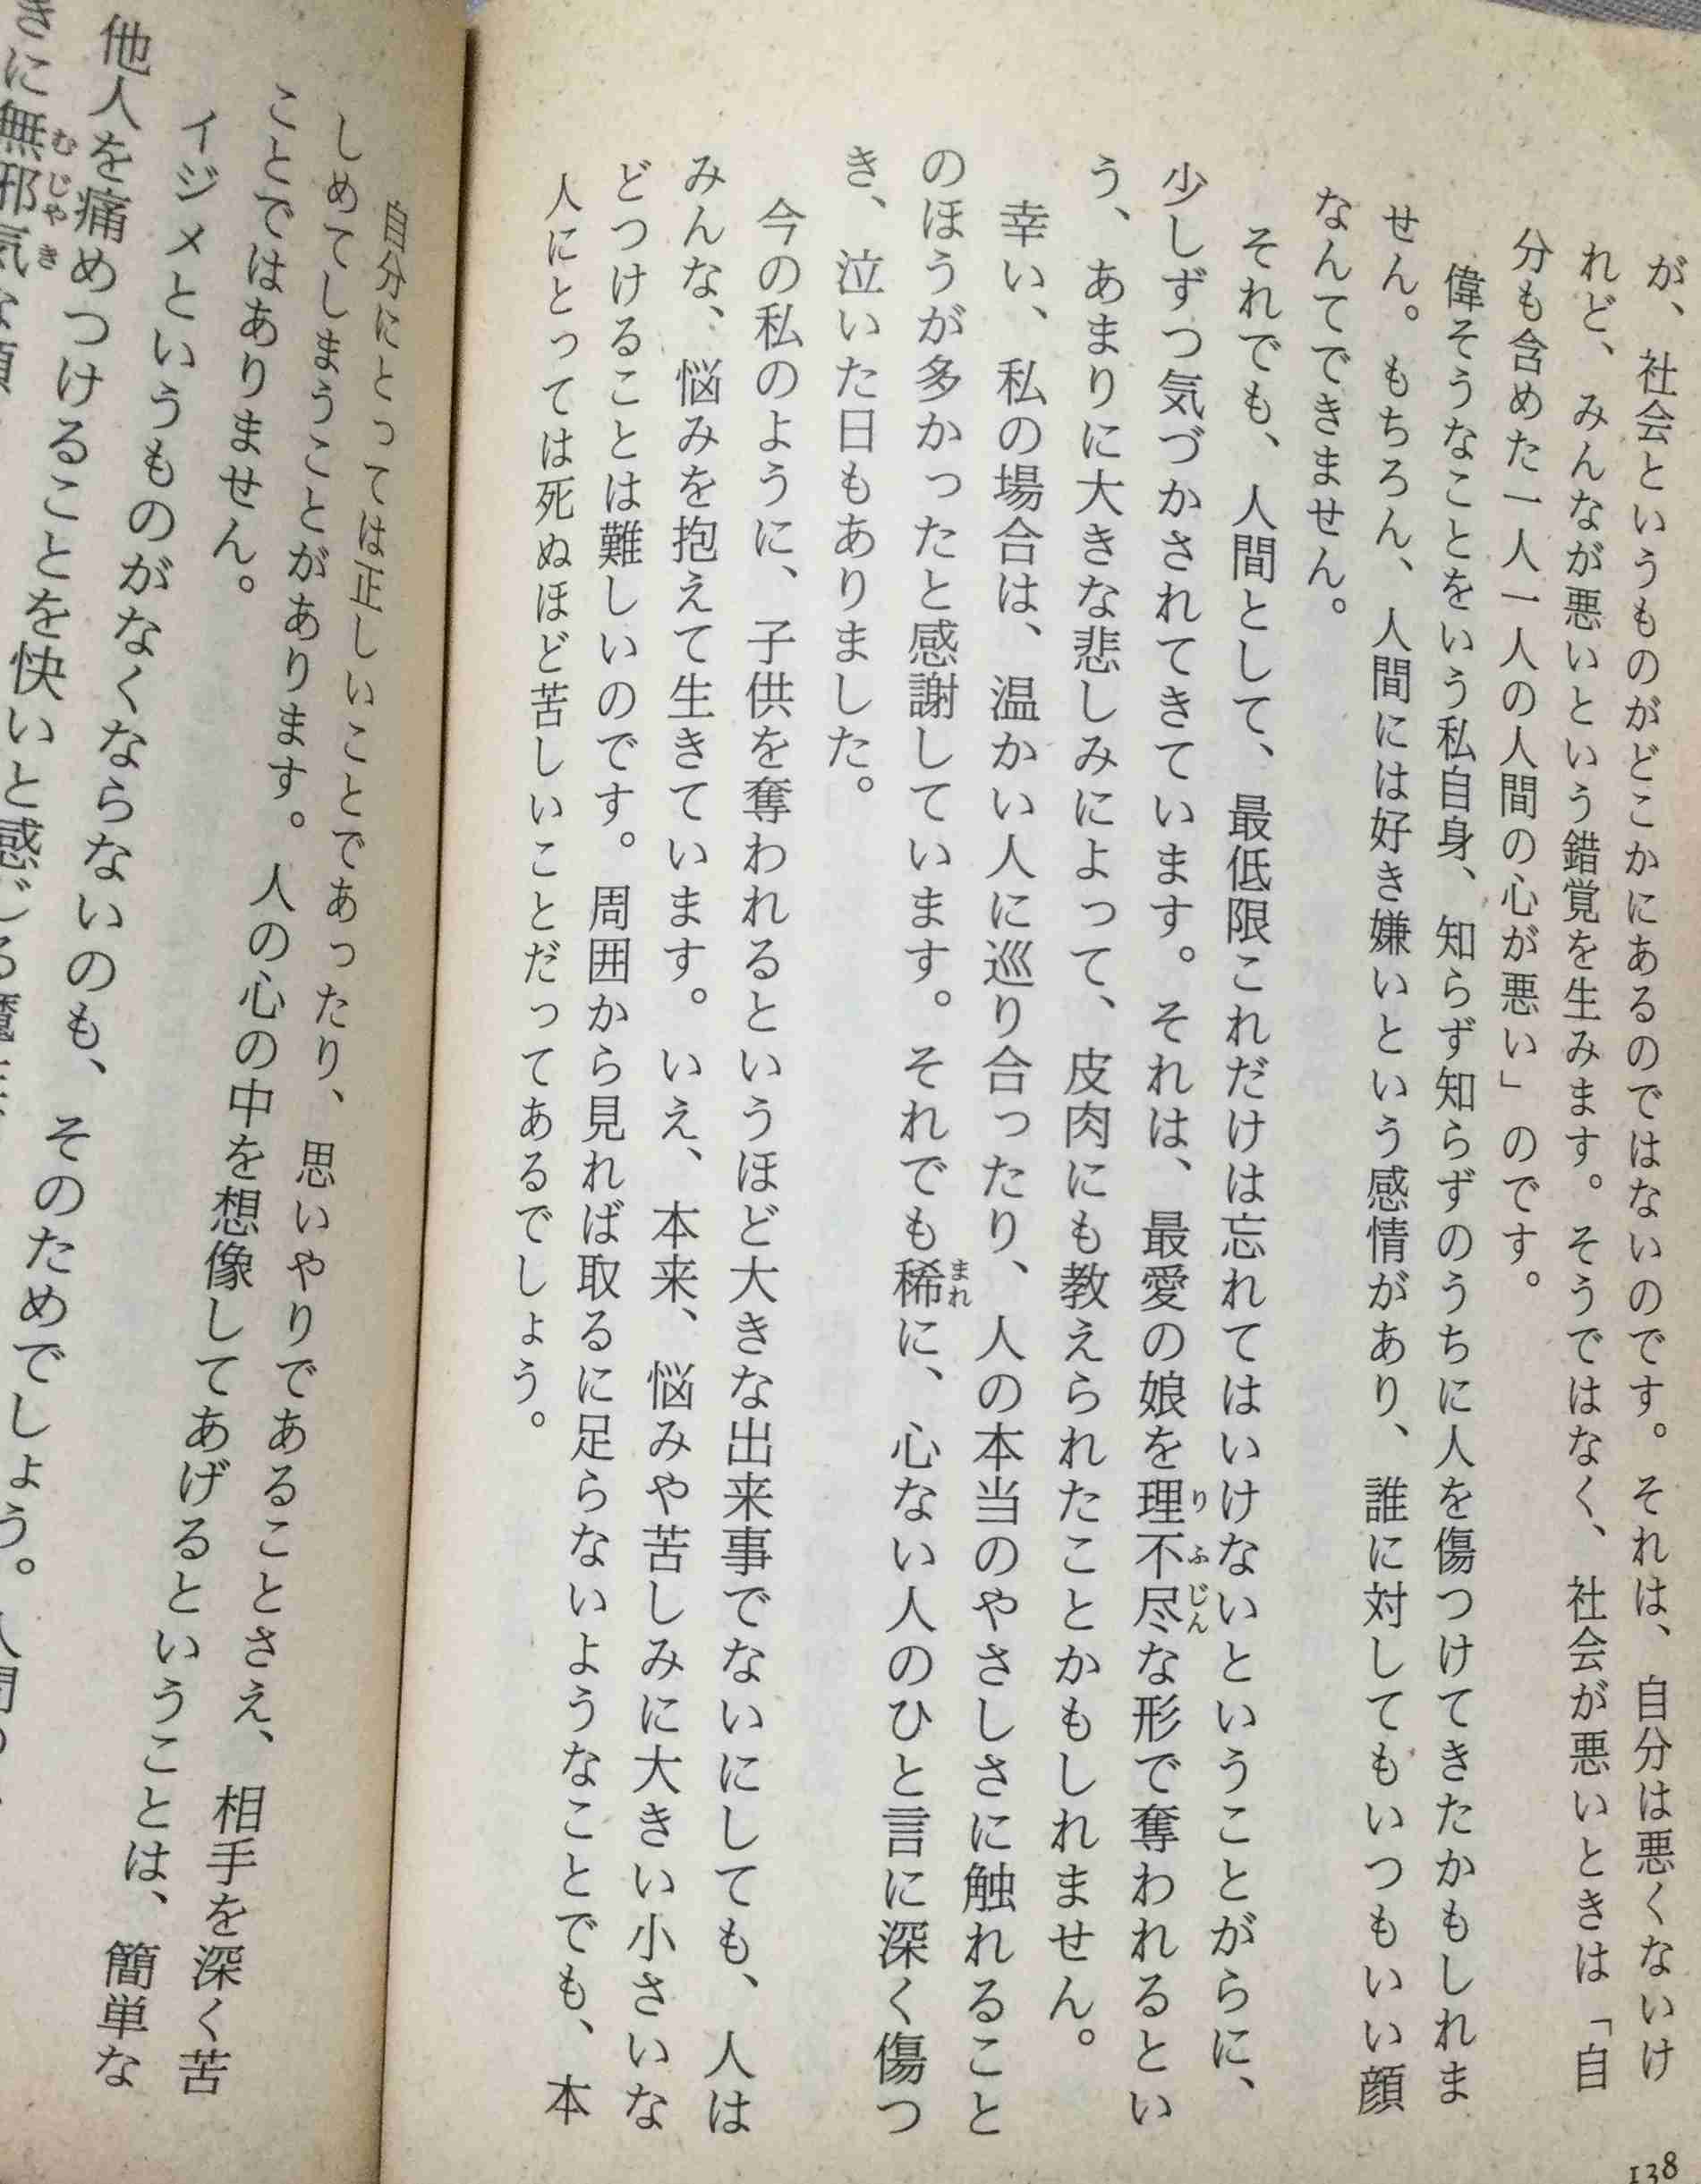 が、社会というものがどこかにあるのではないのです。それは、自分は悪くないけ
れど、みんなが悪いという錯覚を生みます。そうではなく、社会が悪いときは「自
分も含めた一人一人の人間の心が悪い」のです。
偉そうなことをいう私自身、知らず知らずのうちに人を傷つけてきたかもしれま
せん。もちろん、人間には好き嫌いという感情があり、誰に対してもいつもいい顔
なんてできません。
それでも、人間として、最低限これだけは忘れてはいけないということがらに、
少しずつ気づかされてきています。それは、最愛の娘を理不尽な形で奪われるとい
う、あまりに大きな悲しみによって、皮肉にも教えられたことかもしれません。
幸い、私の場合は、温かい人に巡り合ったり、人の本当のやさしさに触れること
のほうが多かったと感謝しています。それでも稀に、心ない人のひと言に深く傷つ
き、泣いた日もありました。
今の私のように、子供を奪われるというほど大きな出来事でないにしても、人は
みんな、悩みを抱えて生きています。いえ、本来、悩みや苦しみに大きい小さいな
どつけることは難しいのです。周囲から見れば取るに足らないようなことでも、本
人にとっては死ぬほど苦しいことだってあるでしょう。
138
自分にとっては正しいことであったり、思いやりであることさえ、相手を深く苦
しめてしまうことがあります。人の心の中を想像してあげるということは、簡単な
ことではありません。
イジメというものがなくならないのも、そのためでしょう。
他人を痛めつけることを快いと感じる魔
きに無邪気な